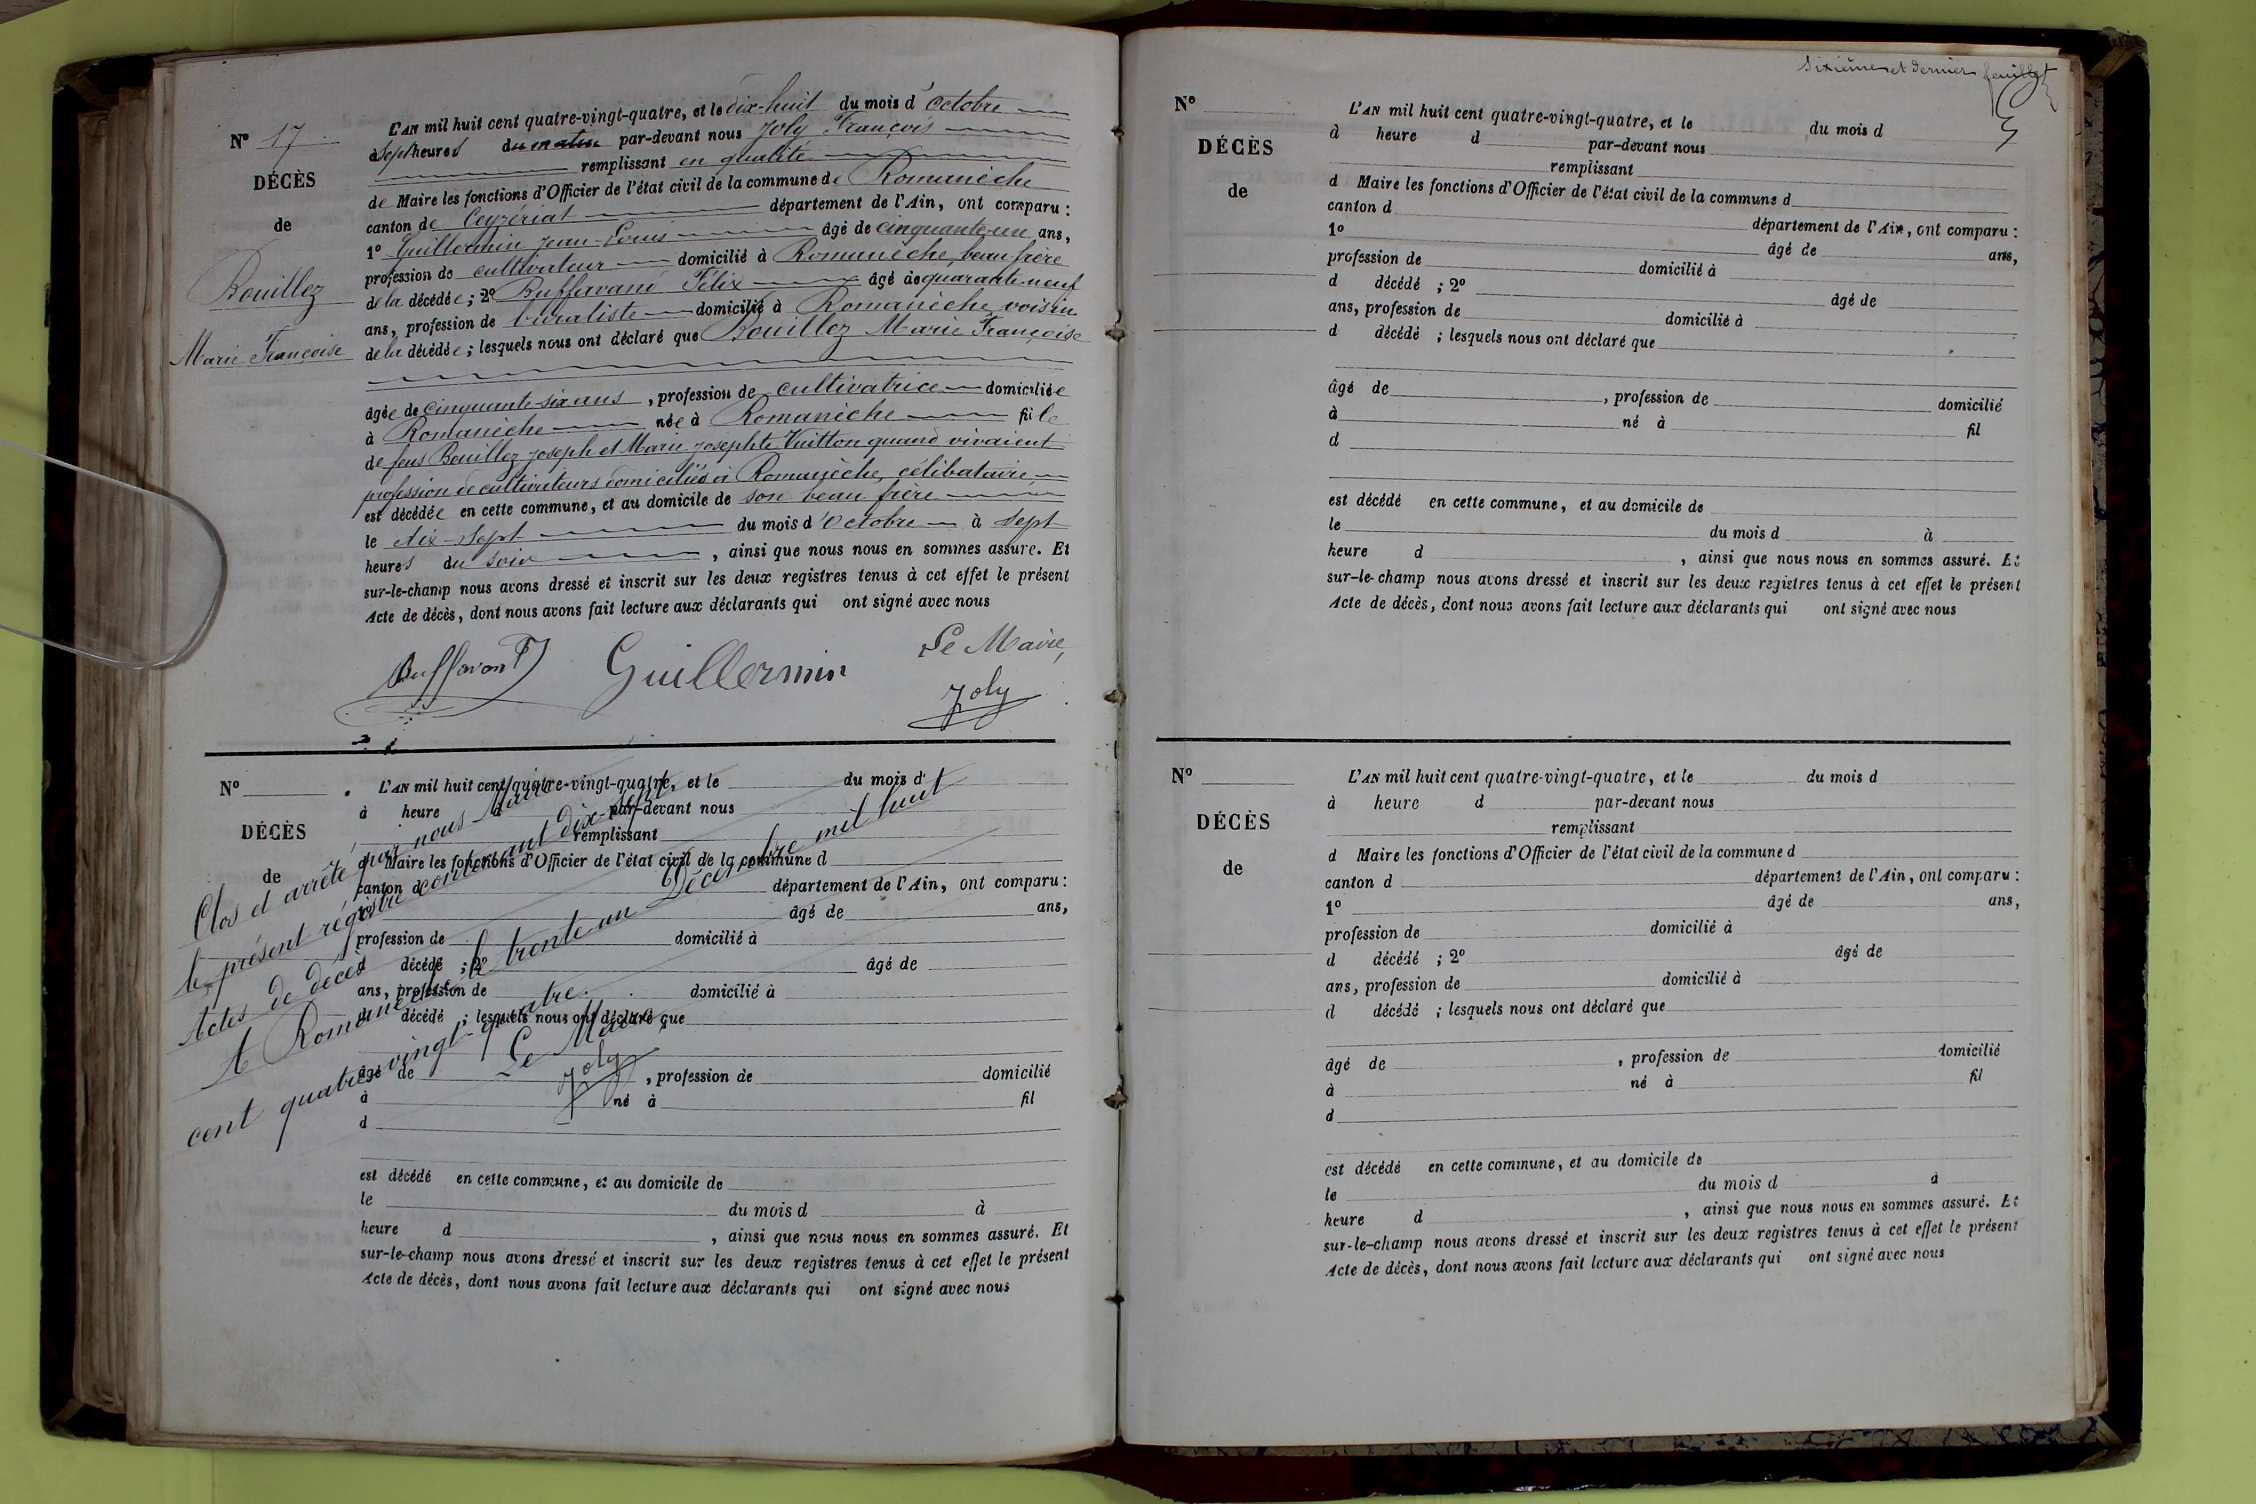 N° 17
DÉCÈS
de
Bouillez
Marie Françoise
L'AN mil huit cent quatre-vingt-quatre, et le dix-huit du mois d'octobre
à sept heures du matin par-devant nous Joly François
remplissant en qualité
de Maire les fonctions d'Officier de l'état civil de la commune de Romanèche
canton de Ceyzériat département de l'Ain, ont comparu :
1° Guillermin Jean-Louis âgé de cinquante-un ans,
profession de cultivateur domicilié à Romanèche, beau frère
de la décédée ; 2° Buffavand Félix âgé de quarante-neuf
ans, profession de buraliste domicilié à Romanèche voisin
de la décédée ; lesquels nous ont déclaré que Bouillez Marie Françoise
âgée de cinquante-six ans, profession de cultivatrice domiciliée
à Romanèche née à Romanèche fille
de feus Bouillez Joseph et Marie Josephte Vuitton quand vivaient
profession de cultivateurs domiciliés à Romanèche, célibataire
est décédée en cette commune, et au domicile de son beau frère
le dix-sept du mois d'octobre à sept
heures du soir, ainsi que nous nous en sommes assuré. Et
sur-le-champ nous avons dressé et inscrit sur les deux registres tenus à cet effet le présent
Acte de décès, dont nous avons fait lecture aux déclarants qui ont signé avec nous
Le Maire,
Buffavand F Guillermin
Joly
N°
DÉCÈS
de
L'AN mil huit cent quatre-vingt-quatre, et le du mois d'
à heure d par-devant nous
remplissant
d Maire les fonctions d'Officier de l'état civil de la commune d
canton d département de l'Ain, ont comparu :
1° âgé de ans,
profession de domicilié à
d décédé ; 2° âgé de
ans, profession de domicilié à
d décédé ; lesquels nous ont déclaré que
âgé de , profession de domicilié
à né à fil
d
est décédé en cette commune, et au domicile de
le du mois d à
heure d , ainsi que nous nous en sommes assuré. Et
sur-le-champ nous avons dressé et inscrit sur les deux registres tenus à cet effet le présent
Acte de décès, dont nous avons fait lecture aux déclarants qui ont signé avec nous
Clos et arrêté par nous Maire
le présent régistre contenant dix-sept
Actes de décès
A Romanèche le trente un Décembre mil huit
cent quatre vingt-quatre.
Le Maire,
Joly
Sixième et dernier feuillet
N°
DÉCÈS
de
L'AN mil huit cent quatre-vingt-quatre, et le du mois d
à heure d par-devant nous
remplissant
d Maire les fonctions d'Officier de l'état civil de la commune d
canton d département de l'Ain, ont comparu :
1° âgé de ans,
profession de domicilié à
d décédé ; 2° âgé de
ans, profession de domicilié à
d décédé ; lesquels nous ont déclaré que
âgé de , profession de domicilié
à né à fil
d
est décédé en cette commune, et au domicile de
le du mois d à
heure d , ainsi que nous nous en sommes assuré. Et
sur-le-champ nous avons dressé et inscrit sur les deux registres tenus à cet effet le présent
Acte de décès, dont nous avons fait lecture aux déclarants qui ont signé avec nous
N°
DÉCÈS
de
L'AN mil huit cent quatre-vingt-quatre, et le du mois d
à heure d par-devant nous
remplissant
d Maire les fonctions d'Officier de l'état civil de la commune d
canton d département de l'Ain, ont comparu :
1° âgé de ans,
profession de domicilié à
d décédé ; 2° âgé de
ans, profession de domicilié à
d décédé ; lesquels nous ont déclaré que
âgé de , profession de domicilié
à né à fil
d
est décédé en cette commune, et au domicile de
le du mois d à
heure d , ainsi que nous nous en sommes assuré. Et
sur-le-champ nous avons dressé et inscrit sur les deux registres tenus à cet effet le présent
Acte de décès, dont nous avons fait lecture aux déclarants qui ont signé avec nous